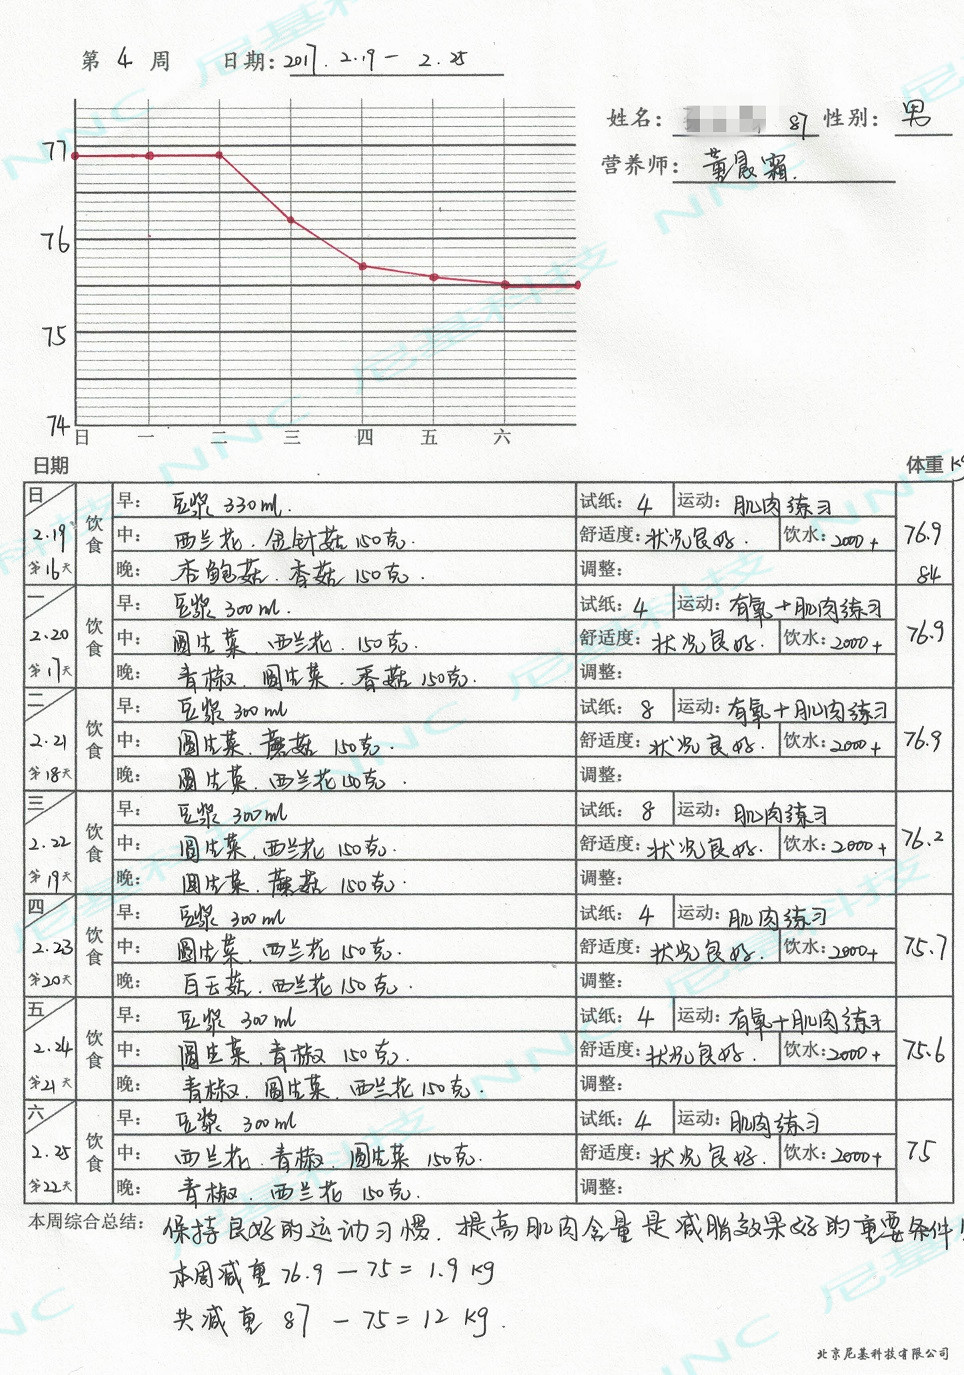 第 4 周 日期: 2017.2.19 — 2.25
姓名: 87 性别: 男
营养师: 董晨霜.
77
76
75
74
日 一 二 三 四 五 六
日期 体重 kg
日 2.19 第16天 饮食 76.9 84
早: 豆浆 330ml. 试纸: 4 运动: 肌肉练习
中: 西兰花、金针菇 150克. 舒适度: 状况良好. 饮水: 2000+
晚: 杏鲍菇、香菇 150克. 调整:
一 2.20 第17天 饮食 76.9
早: 豆浆 300ml. 试纸: 4 运动: 有氧+肌肉练习
中: 圆生菜、西兰花、150克. 舒适度: 状况良好. 饮水: 2000+
晚: 青椒、圆生菜、香菇 150克. 调整:
二 2.21 第18天 饮食 76.9
早: 豆浆 300ml 试纸: 8 运动: 有氧+肌肉练习
中: 圆生菜、蘑菇 150克. 舒适度: 状况良好. 饮水: 2000+
晚: 圆生菜、西兰花 150克. 调整:
三 2.22 第19天 饮食 76.2
早: 豆浆 300ml 试纸: 8 运动: 肌肉练习
中: 圆生菜、西兰花 150克. 舒适度: 状况良好. 饮水: 2000+
晚: 圆生菜、蘑菇 150克. 调整:
四 2.23 第20天 饮食 75.7
早: 豆浆 300ml 试纸: 4 运动: 肌肉练习
中: 圆生菜、西兰花 150克. 舒适度: 状况良好. 饮水: 2000+
晚: 白玉菇、西兰花 150克. 调整:
五 2.24 第21天 饮食 75.6
早: 豆浆 300ml 试纸: 4 运动: 有氧+肌肉练习
中: 圆生菜、青椒 150克. 舒适度: 状况良好. 饮水: 2000+
晚: 青椒、圆生菜、西兰花 150克. 调整:
六 2.25 第22天 饮食 75
早: 豆浆 300ml 试纸: 4 运动: 肌肉练习
中: 西兰花、青椒、圆生菜 150克. 舒适度: 状况良好. 饮水: 2000+
晚: 青椒、西兰花 150克. 调整:
本周综合总结: 保持良好的运动习惯、提高肌肉含量是减脂效果好的重要条件!
本周减重 76.9 — 75 = 1.9 kg
共减重 87 — 75 = 12 kg.
北京尼基科技有限公司
NNC 尼基科技